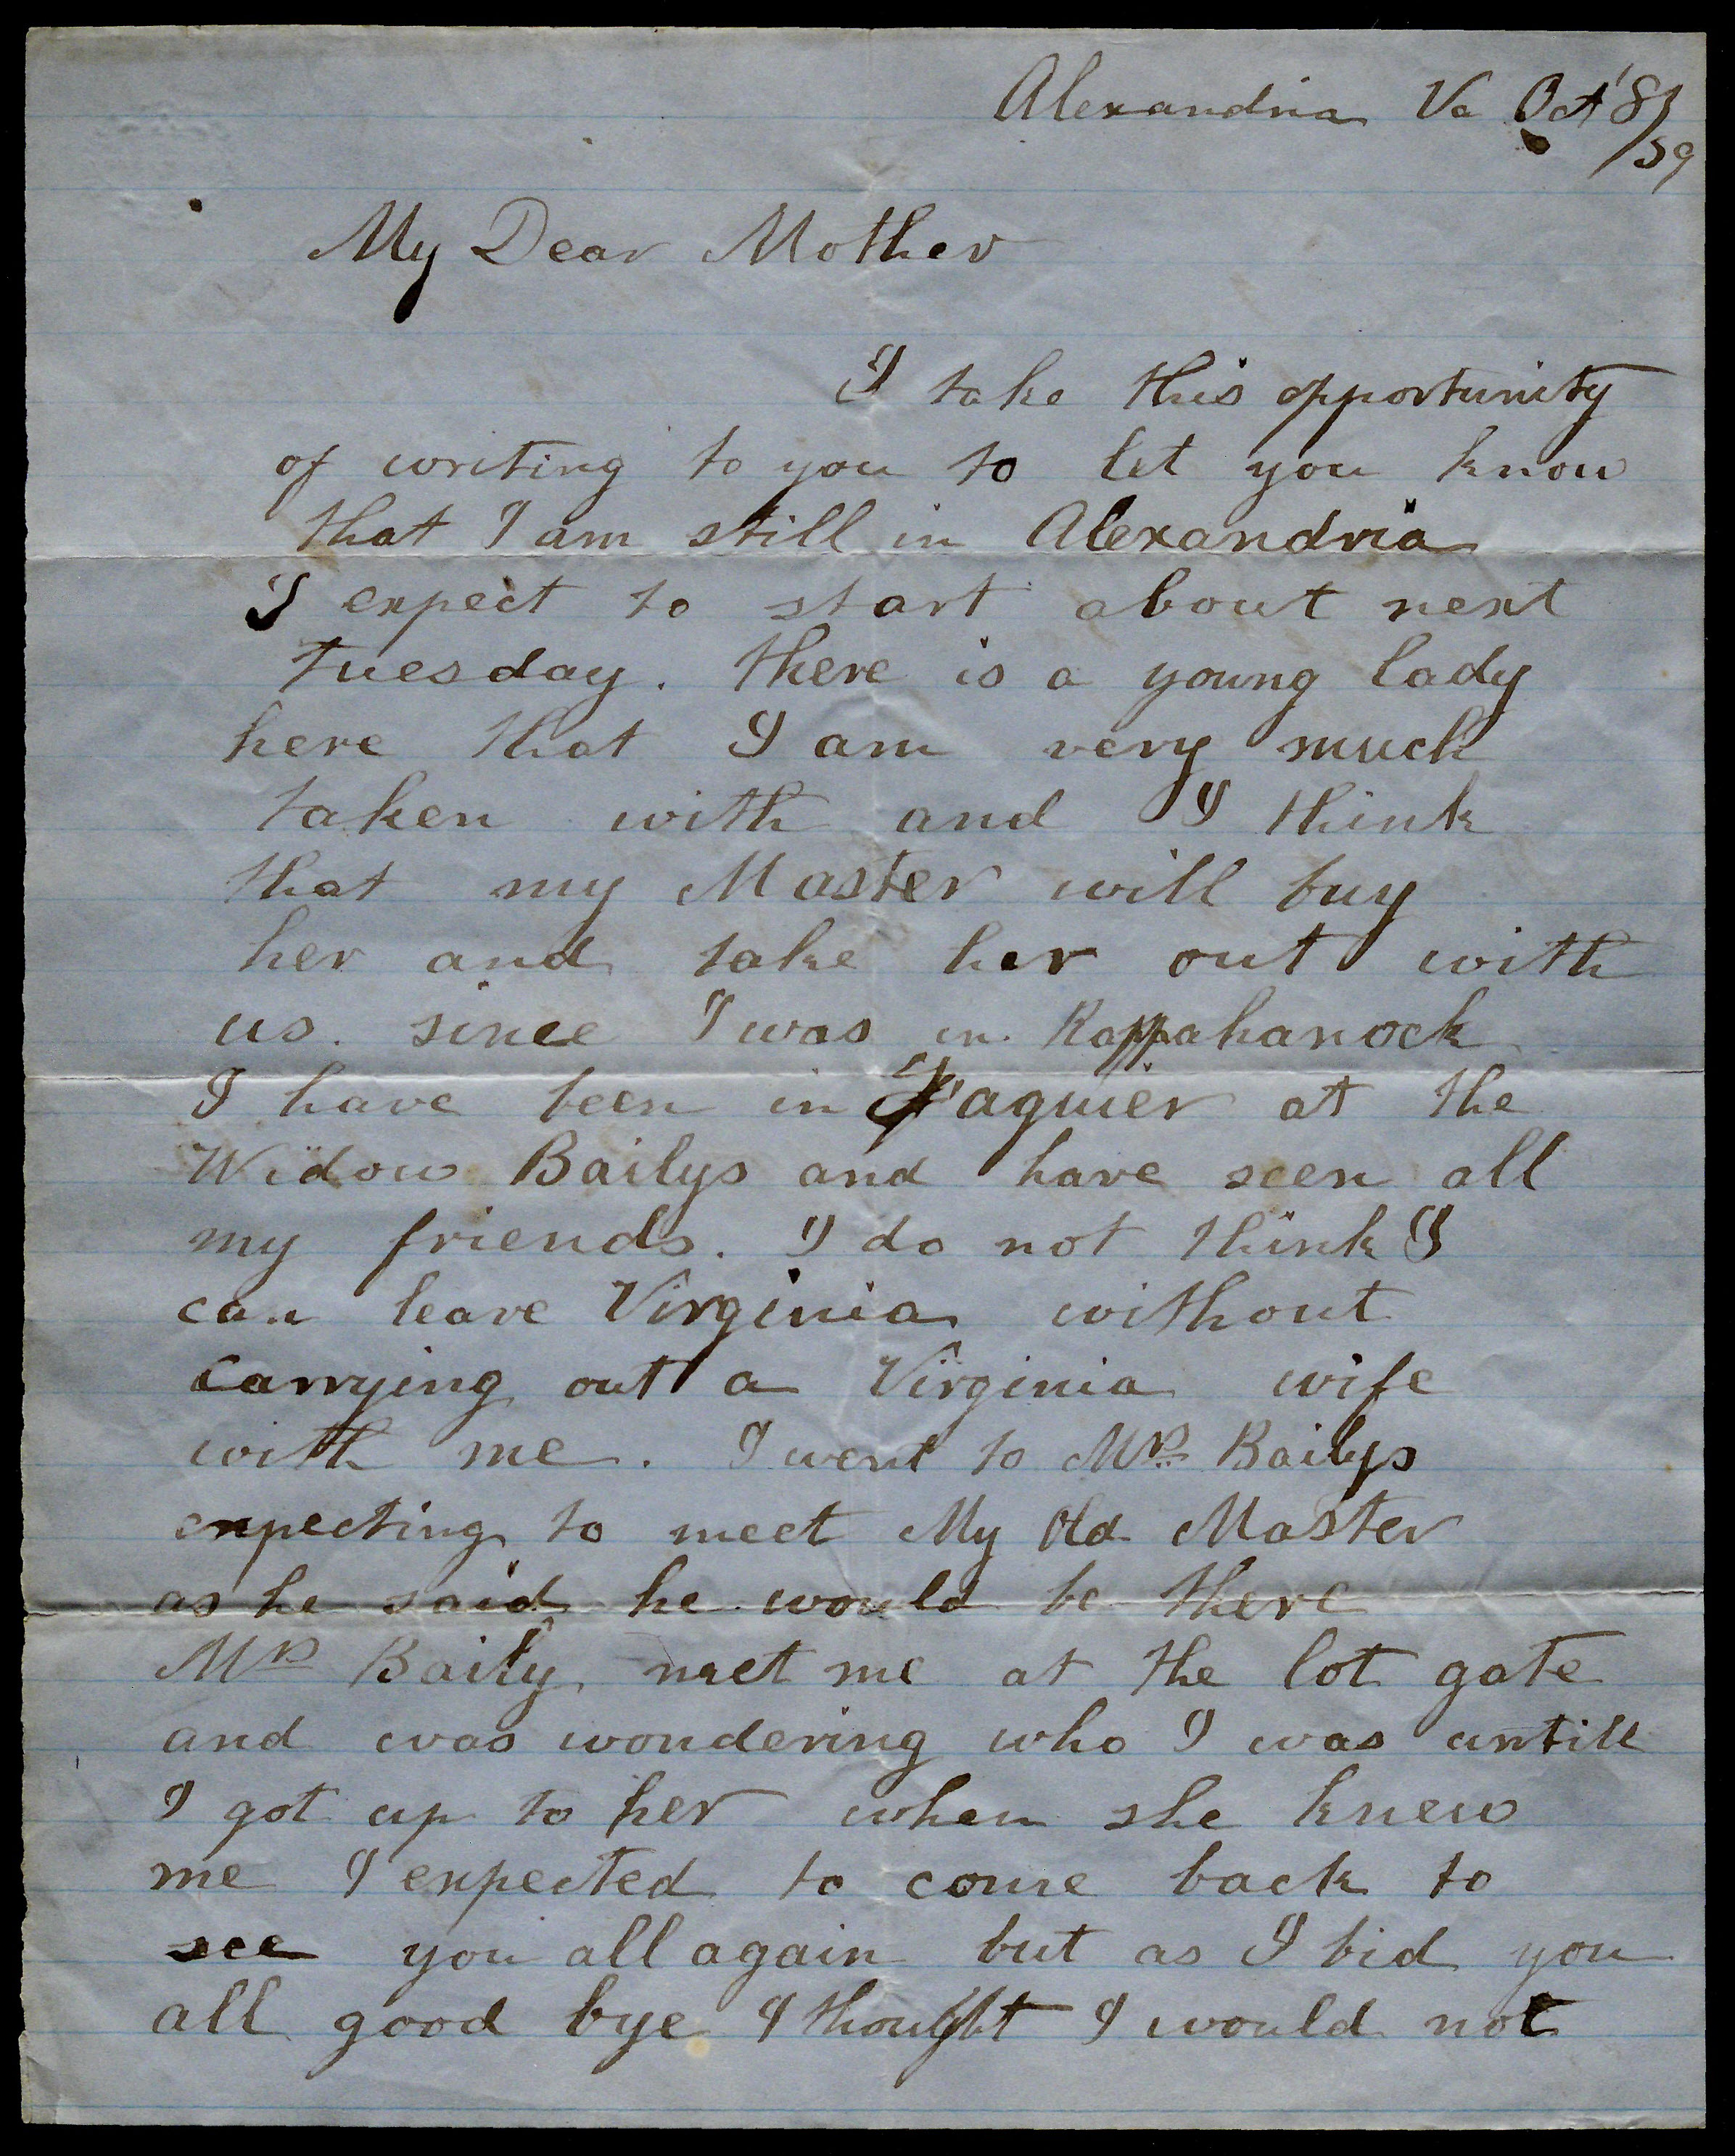 Alexandria Va Oct 8/59
My Dear Mother
I take this opportunity
of writing to you to let you know
that I am still in Alexandria
I expect to start about next
Tuesday. there is a young lady
here that I am very much
taken with and I think
that my Master will buy
her and take her out with
us. since I was in Rappahanock
I have been in Faquier at the
Widow Bailys and have seen all
my friends. I do not think I
can leave Virginia without
carrying out a Virginia wife
with me. I went to Mrs Bailys
expecting to meet My Old Master
as he said he would be there
Mrs Baily met me at the lot gate
and was wondering who I was untill
I got up to her when she knew
me I expected to come back to
see you all again but as I bid you
all good bye I thought I would not